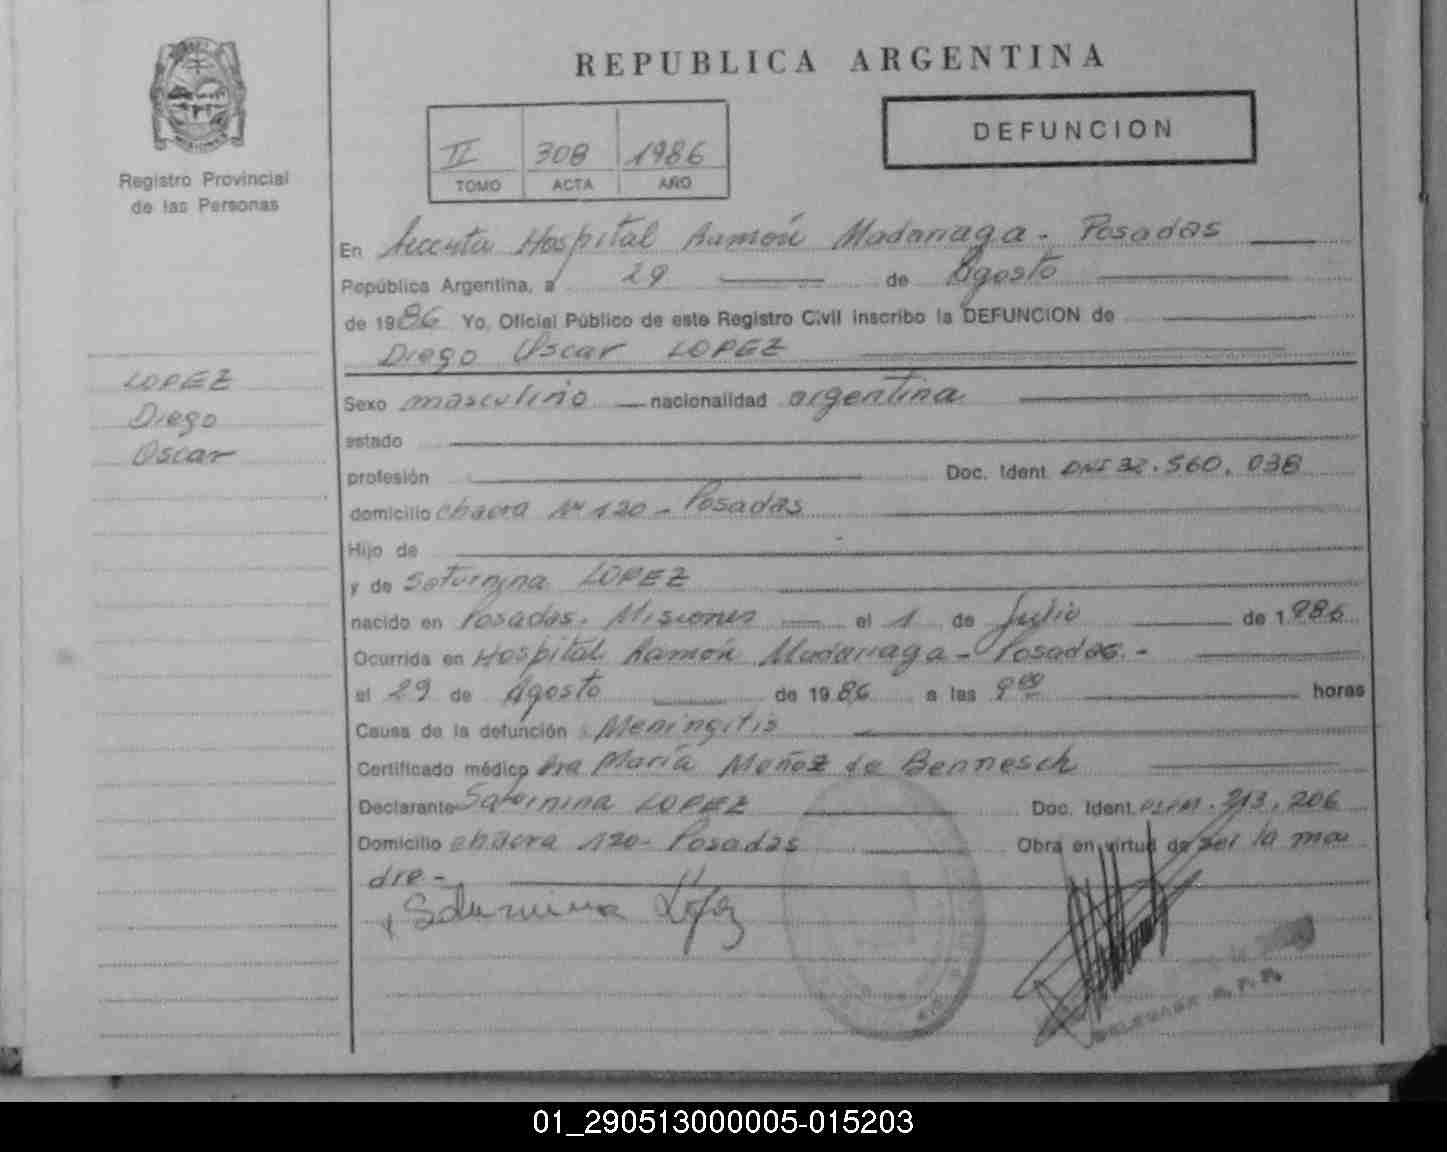 REPUBLICA ARGENTINA
DEFUNCION
II 308 1986
TOMO ACTA AÑO
Registro Provincial
de las Personas
LOPEZ
Diego
Oscar
En Hospital Ramón Madariaga - Posadas
República Argentina, a 29 de Agosto
de 1986 Yo, Oficial Público de este Registro Civil inscribo la DEFUNCION de
Diego Oscar LOPEZ
Sexo masculino nacionalidad argentina
estado
profesión Doc. Ident. DNI 32.560.038
domicilio chacra Nº 120 - Posadas
Hijo de
y de Saturnina LOPEZ
nacido en Posadas. Misiones el 1 de Julio de 1986
Ocurrida en Hospital Ramón Madariaga - Posadas. -
el 29 de Agosto de 1986 a las 9 00 horas
Causa de la defunción Meningitis
Certificado médico Dra María Muñoz de Bennesch
Declarante Saturnina LOPEZ Doc. Ident. 913.206
Domicilio chacra 120 - Posadas Obra en virtud de ser la ma
dre -
Saturnina López
01_290513000005-015203